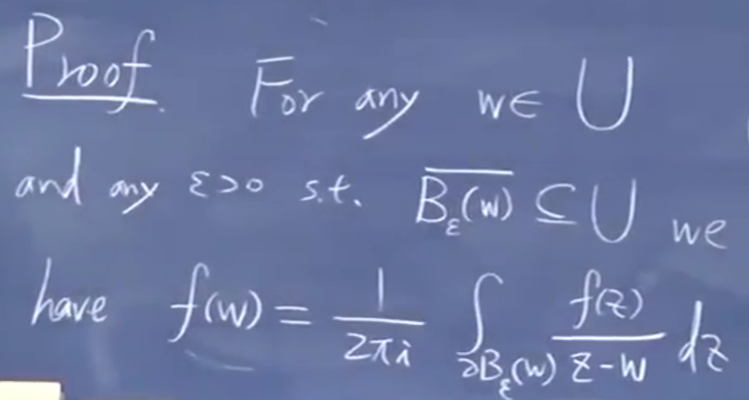 Proof. For any w ∈ U
and any ε>0 s.t. \overline{B_ε(w)} ⊆ U we
have f(w) = \frac{1}{2πi} ∫_{∂B_ε(w)} \frac{f(z)}{z-w} dz